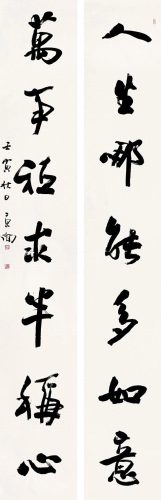 人生哪能多如意
萬事祗求半稱心
壬寅秋日